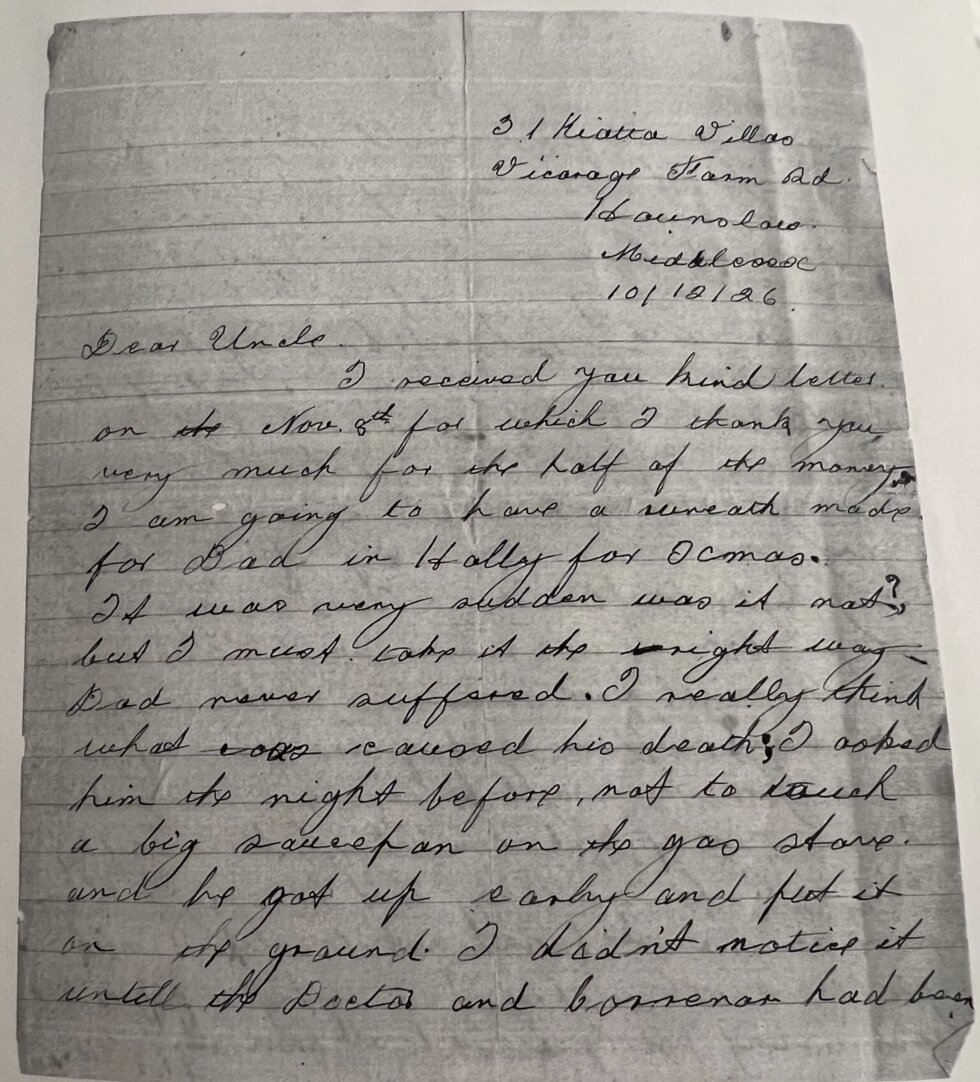 31 Kiatta Villas
Vicarage Farm Rd.
Hounslow.
Middlesex
10/12/26
Dear Uncle.
I received you kind letter.
on the Nov. 8th for which I thank you
very much for the half of the money.
I am going to have a wreath made
for Dad in Holly for Xmas.
It was very sudden was it not?,
but I must take it the right way
Dad never suffered. I really think
what was caused his death; I asked
him the night before, not to touch
a big saucepan on the gas stove.
and he got up early and put it
on the ground. I didn't notice it
untell the Doctor and correnor had been